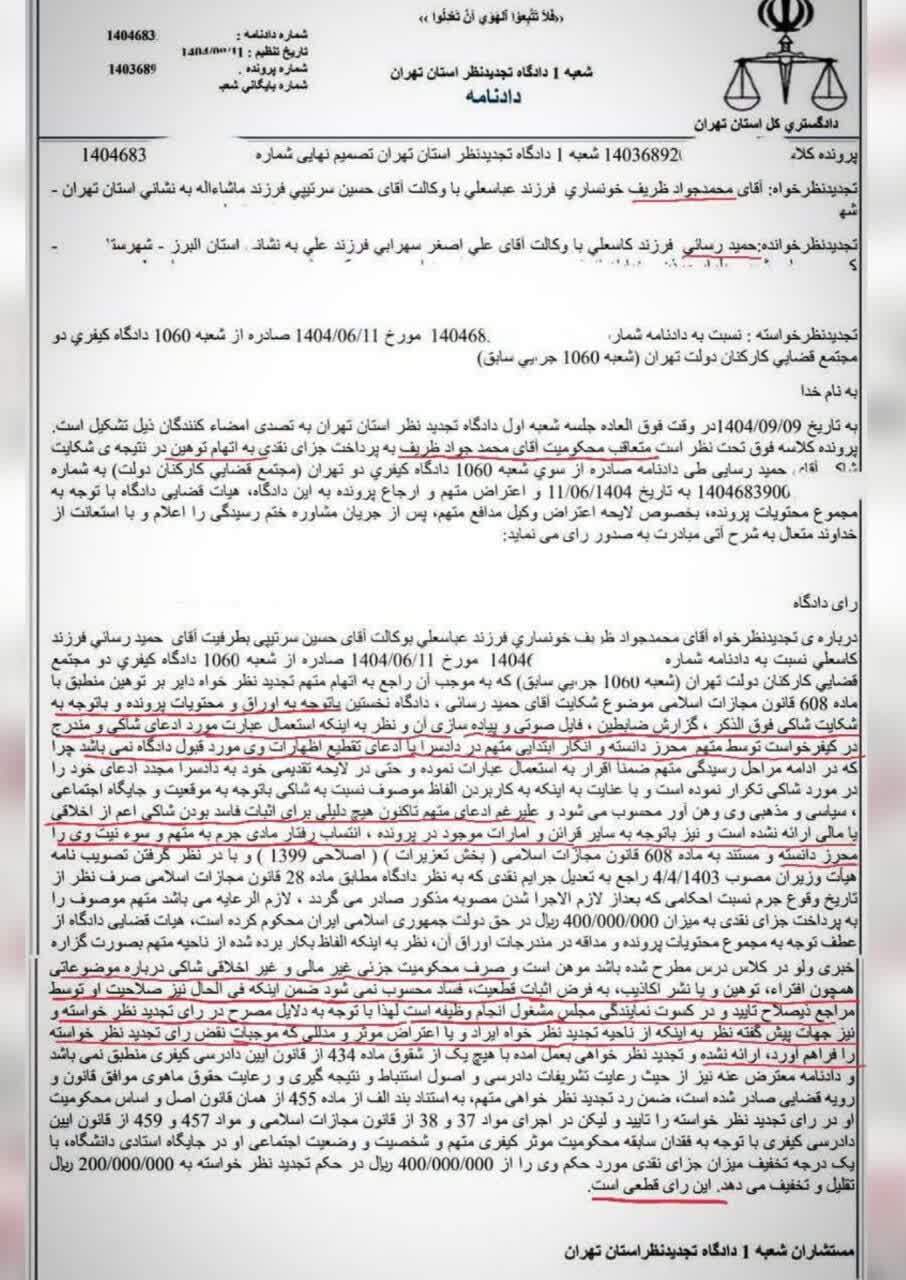 «فَلا تَتَّبِعُوا الْهَوي أَنْ تَعْدِلُوا»
شماره دادنامه : 1404683
تاریخ تنظیم :
شماره پرونده 1403689
شماره بایگانی شعب
شعبه 1 دادگاه تجدیدنظر استان تهران
دادنامه
دادگستري کل استان تهران
پرونده کلا 14036892 شعبه 1 دادگاه تجدیدنظر استان تهران تصمیم نهایی شماره 1404683
تجدیدنظرخواه: آقاي محمدجواد ظریف خونساري فرزند عباسعلي با وکالت آقاي حسین سرتیپي فرزند ماشاءاله به نشاني استان تهران -
شه
تجدیدنظرخوانده:حمید رسائي فرزند کاسعلي با وکالت آقاي علي اصغر سهرابي فرزند علي به نشانی استان البرز - شهرست -
تجدیدنظرخواسته : نسبت به دادنامه شمار 140468 مورخ 1404/06/11 صادره از شعبه 1060 دادگاه کیفري دو
مجتمع قضایي کارکنان دولت تهران (شعبه 1060 جزیي سابق)
به نام خدا
به تاریخ 1404/09/09در وقت فوق العاده جلسه شعبه اول دادگاه تجدید نظر استان تهران به تصدی امضاء کنندگان ذیل تشکیل است.
پرونده کلاسه فوق تحت نظر است متعاقب محکومیت آقای محمد جواد ظریف به پرداخت جزای نقدی به اتهام توهین در نتیجه ی شکایت
شاکی آقای حمید رسایی طی دادنامه صادره از سوي شعبه 1060 دادگاه کیفري دو تهران (مجتمع قضائي کارکنان دولت) به شماره
1404683900 به تاریخ 11/06/1404 و اعتراض متهم و ارجاع پرونده به این دادگاه، هیات قضایی دادگاه با توجه به
مجموع محتویات پرونده، بخصوص لایحه اعتراض وکیل مدافع متهم، پس از جریان مشاوره ختم رسیدگی را اعلام و با استعانت از
خداوند متعال به شرح آتی مبادرت به صدور رای می نماید:
رای دادگاه
درباره ی تجدیدنظرخواه آقاي محمدجواد ظریف خونساري فرزند عباسعلي بوکالت آقاي حسین سرتیپي بطرفیت آقاي حمید رسائي فرزند
کاسعلي نسبت به دادنامه شماره 14046 مورخ 1404/06/11 صادره از شعبه 1060 دادگاه کیفري دو مجتمع
قضایي کارکنان دولت تهران (شعبه 1060 جزیي سابق) که به موجب آن راجع به اتهام متهم تجدید نظر خواه دایر بر توهین منطبق با
ماده 608 قانون مجازات اسلامی موضوع شکایت آقای حمید رسایی ، دادگاه نخستین باتوجه به اوراق و محتویات پرونده و باتوجه به
شکایت شاکی فوق الذکر ، گزارش ضابطین ، فایل صوتی و پیاده سازی آن و نظر به اینکه استعمال عبارت مورد ادعای شاکی و مندرج
در کیفرخواست توسط متهم محرز دانسته و انکار ابتدایی متهم در دادسرا با ادعای تقطیع اظهارات وی مورد قبول دادگاه نمی باشد چرا
که در ادامه مراحل رسیدگی متهم ضمناً اقرار به استعمال عبارات نموده و حتی در لایحه تقدیمی خود به دادسرا مجدد ادعای خود را
در مورد شاکی تکرار نموده است و با عنایت به اینکه به کاربردن الفاظ موصوف نسبت به شاکی باتوجه به موقعیت و جایگاه اجتماعی
، سیاسی و مذهبی وی وهن آور محسوب می شود و علیرغم ادعای متهم تاکنون هیچ دلیلی برای اثبات فاسد بودن شاکی اعم از اخلاقی
یا مالی ارائه نشده است و نیز باتوجه به سایر قرائن و امارات موجود در پرونده ، انتساب رفتار مادی جرم به متهم و سوء نیت وی را
محرز دانسته و مستند به ماده 608 قانون مجازات اسلامی ( بخش تعزیرات ) ( اصلاحی 1399 ) و با در نظر گرفتن تصویب نامه
هیأت وزیران مصوب 4/4/1403 راجع به تعدیل جرایم نقدی که به نظر دادگاه مطابق ماده 28 قانون مجازات اسلامی صرف نظر از
تاریخ وقوع جرم نسبت احکامی که بعداز لازم الاجرا شدن مصوبه مذکور صادر می گردد ، لازم الرعایه می باشد متهم موصوف را
به پرداخت جزای نقدی به میزان 400/000/000 ریال در حق دولت جمهوری اسلامی ایران محکوم کرده است، هیات قضایی دادگاه از
عطف توجه به مجموع محتویات پرونده و مداقه در مندرجات اوراق آن، نظر به اینکه الفاظ بکار برده شده از ناحیه متهم بصورت گزاره
خبری ولو در کلاس درس مطرح شده باشد موهن است و صرف محکومیت جزئی غیر مالی و غیر اخلاقی شاکی درباره موضوعاتی
همچون افتراء، توهین و یا نشر اکاذیب، به فرض اثبات قطعیت، فساد محسوب نمی شود ضمن اینکه فی الحال نیز صلاحیت او توسط
مراجع ذیصلاح تایید و در کسوت نمایندگی مجلس مشغول انجام وظیفه است لهذا با توجه به دلایل مصرح در رای تجدید نظر خواسته و
نیز جهات پیش گفته نظر به اینکه از ناحیه تجدید نظر خواه ایراد و یا اعتراض موثر و مدللی که موجبات نقض رای تجدید نظر خواسته
را فراهم آورد، ارائه نشده و تجدید نظر خواهی بعمل آمده با هیچ یک از شقوق ماده 434 از قانون آیین دادرسی کیفری منطبق نمی باشد
و دادنامه معترض عنه نیز از حیث رعایت تشریفات دادرسی و اصول استنباط و نتیجه گیری و رعایت حقوق ماهوی موافق قانون و
رویه قضایی صادر شده است، ضمن رد تجدید نظر خواهی متهم، به استناد بند الف از ماده 455 از همان قانون اصل و اساس محکومیت
او در رای تجدید نظر خواسته را تایید و لیکن در اجرای مواد 37 و 38 از قانون مجازات اسلامی و مواد 457 و 459 از قانون آیین
دادرسی کیفری با توجه به فقدان سابقه محکومیت موثر کیفری متهم و شخصیت و وضعیت اجتماعی او در جایگاه استادی دانشگاه، با
یک درجه تخفیف میزان جزای نقدی مورد حکم وی را از 400/000/000 ریال در حکم تجدید نظر خواسته به 200/000/000 ریال
تقلیل و تخفیف می دهد. این رای قطعی است.
مستشاران شعبه 1 دادگاه تجدیدنظراستان تهران